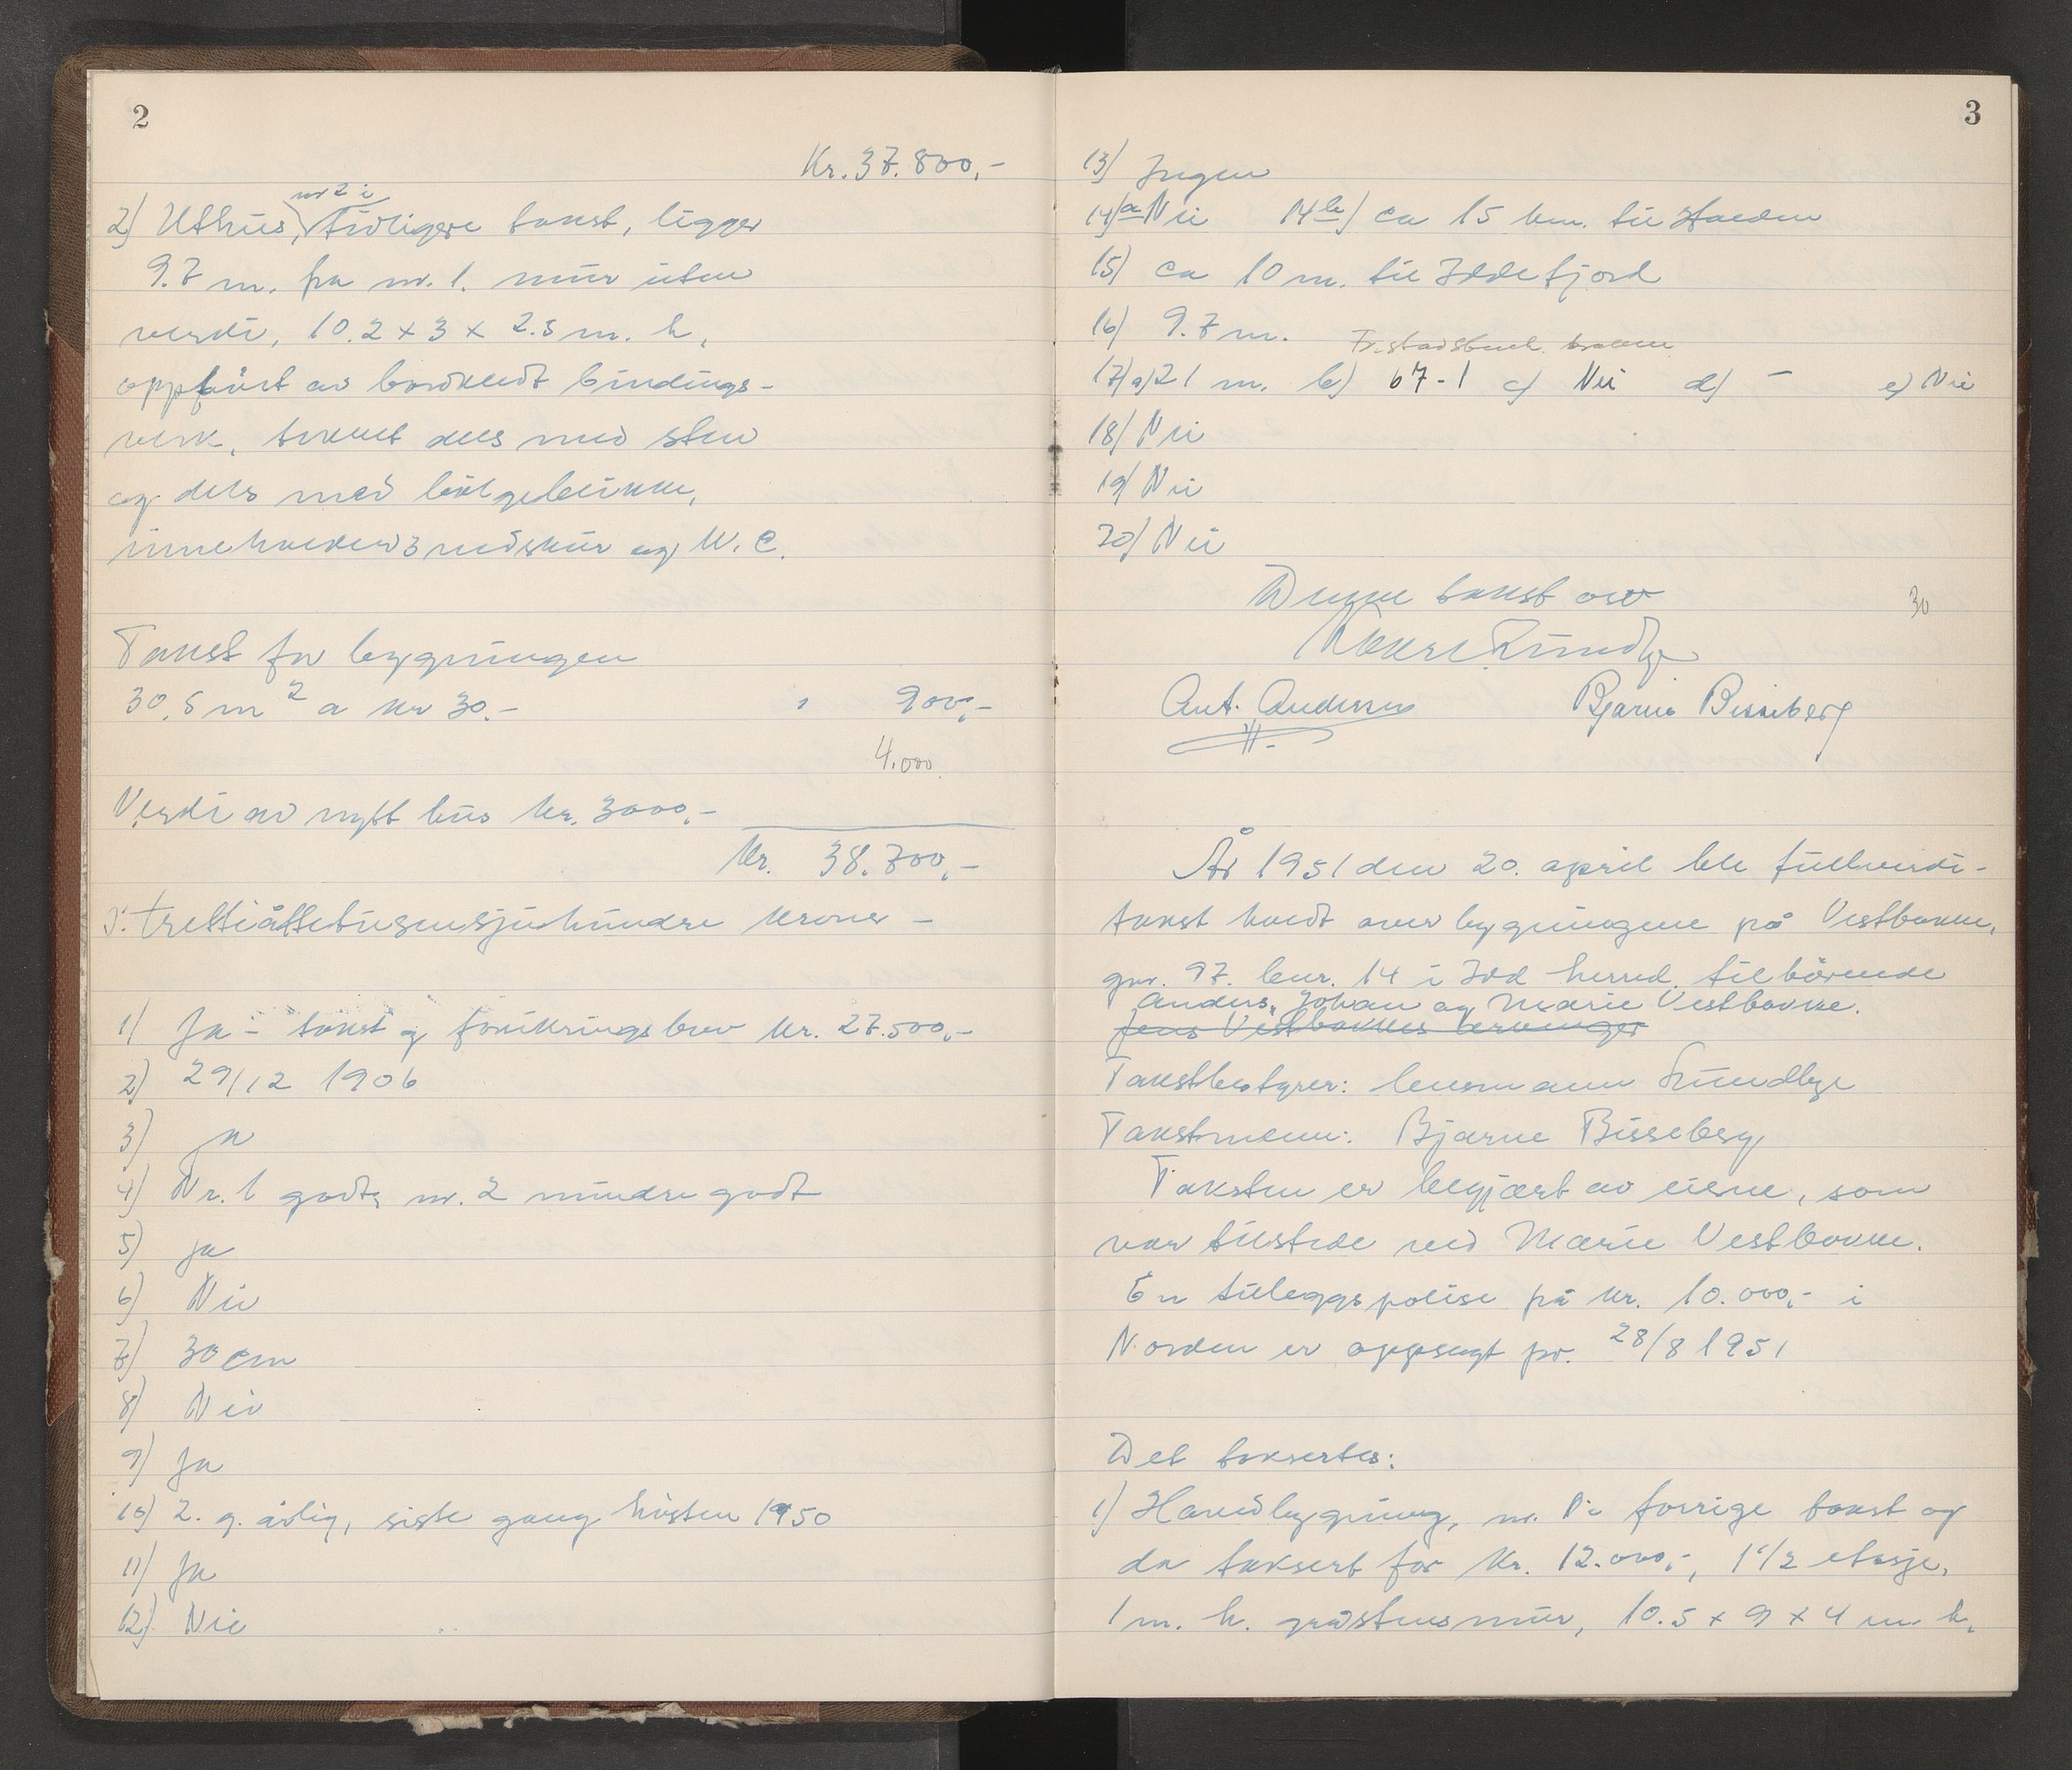 2
Kr. 37.800,-
nr 2 i
2) Uthus, tidligere takst, ligger
9.7 m. fra nr. 1. mur uten
verdi, 10.2 x 3 x 2.5 m. h,
oppført av bordkledt bindings-
verk, tekket dels med sten
og dels med bølgeblikk,
inneholder 3 vedskur og W.C.
Takst for bygningen
30,5 m² a kr 30.- " 900,-
4.000
Verdi av nytt hus kr. 3000,-
Kr. 38.700,-
S: trettiåttetusensjuhundre kroner -
1) Ja - takst og forsikringsbrev kr. 27.500,-
2) 29/12 1906
3) ja
4) Nr. 1 godt, nr. 2 mindre godt
5) ja
6) Nei
7) 30 cm
8) Nei
9) Ja
10) 2. g. årlig, siste gang høsten 1950
11) Ja
12) Nei
3
13) Ingen
14)a Nei 14b) ca 15 km. til Halden
15) ca 10 m. til Iddefjord
16) 9.7 m.
17)a) 21 m. b) 67-1 c) Nei d) - e) Nei
18) Nei
19) Nei
20) Nei
Denne takst
30
Ant. Andersen Bjarne Bisseberg
År 1951 den 20. april ble fullverdi-
takst holdt over bygningene på Vestbakke,
gnr. 97. bnr. 14 i Idd herred tilhørende
Anders, Johan og Marie Vestbakke.
Jens Vestbakkes arvinger
Takstbestyrer: lensmann Sundbye
Takstmenn: Bjarne Bisseberg
Taksten er begjært av eierne, som
var tilstede ved Marie Vestbakke.
En tilleggspolise på kr. 10.000,- i
Norden er oppsagt pr. 28/8 1951
Det takseres:
1) Hovedbygning, nr. 1 i forrige takst og
da taksert for Kr. 12.000,-, 1 1/2 etasje,
1 m. h. gråstensmur, 10.5 x 9 x 4 m. h,